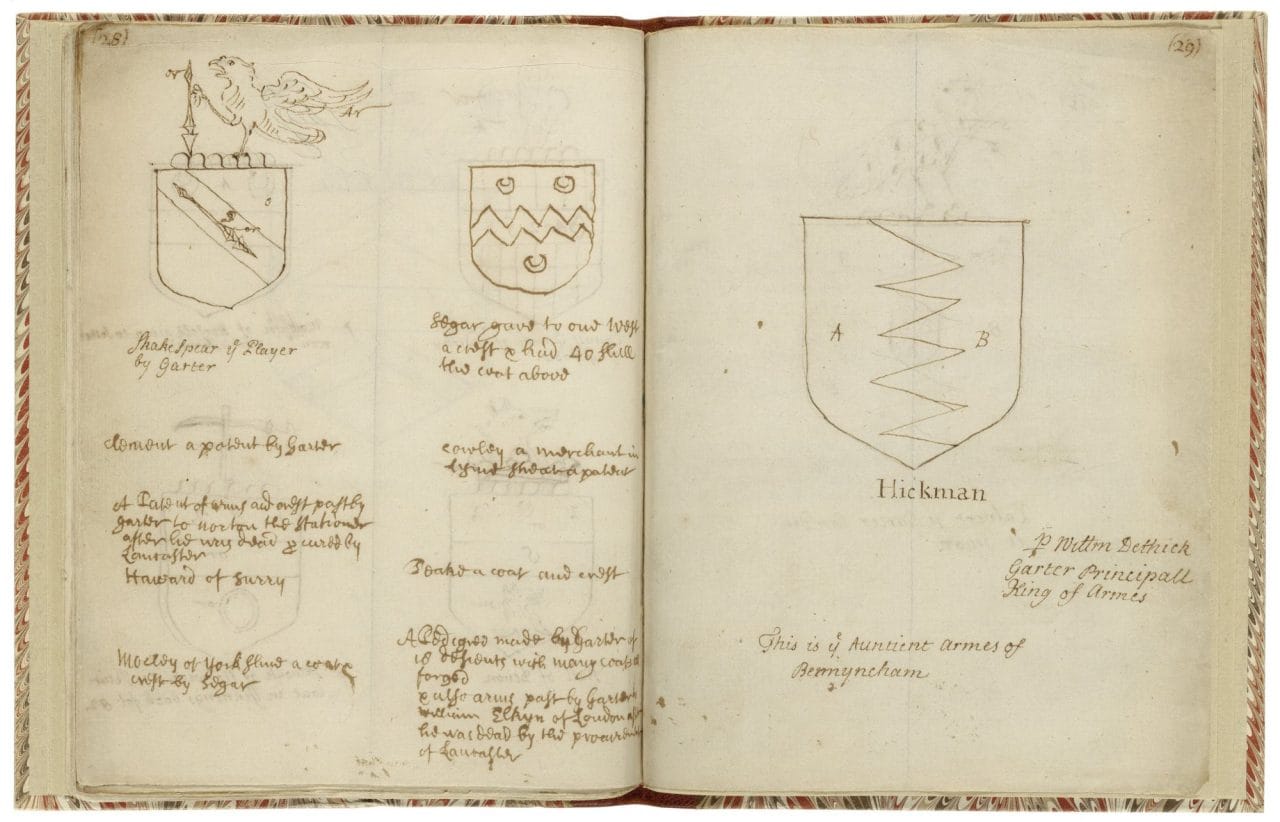 (28)
or
Ar
s
or
Shakespear ye Player
by Garter
Segar gave to one West
a crest & had 40 shill
the coat above
Clement a patent by Garter
Cowley a merchant in
a patent
A Patent of arms and crest past by
Garter to Norton the Stationer
after he was dead p cured by
Lancaster
Haward of Surry
Peake a coat and crest
of Yorkshire a coat &
crest by Segar
A Pedigree made by Garter of
18 descents with many coats
forged
arms past by Garter
William Elkyn of London
he was dead by the
of Lancaster
(29)
A
B
Hickman
p Willm Dethick
Garter Principall
King of Armes
This is ye Auntient Armes of
Bermyncham